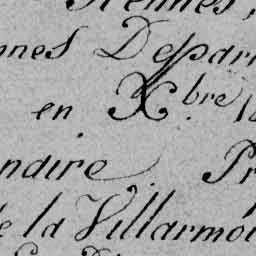 Rennes,
nnes Depar
en Xbre 18
ndire Pr
de la Villarmoi